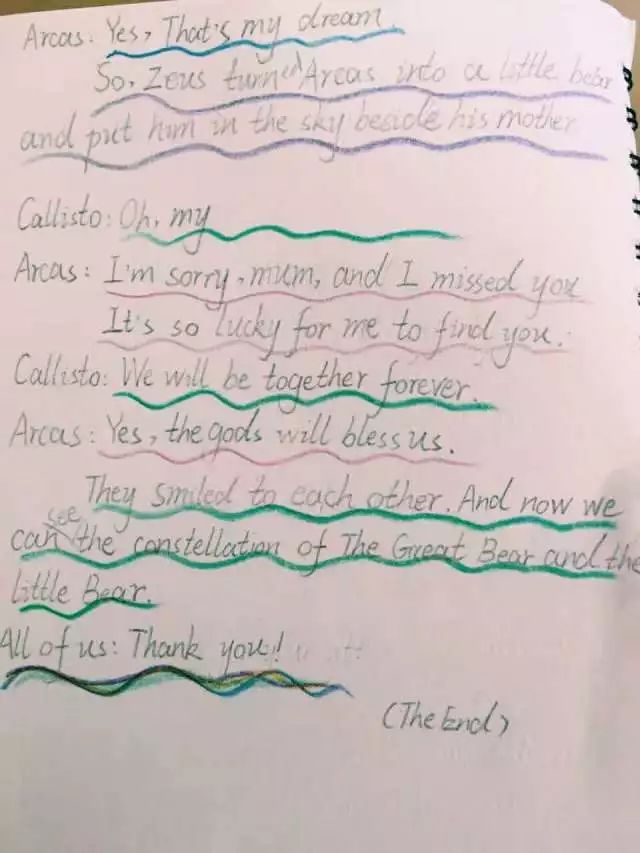 Arcas: Yes, That's my dream.
So, Zeus turned Arcas into a little bear
and put him in the sky beside his mother
Callisto: Oh, my
Arcas: I'm sorry, mum, and I missed you
It's so lucky for me to find you.
Callisto: We will be together forever.
Arcas: Yes, the gods will bless us.
They smiled to each other. And now we
can see the constellation of The Great Bear and the
little Bear.
All of us: Thank you!
(The End)